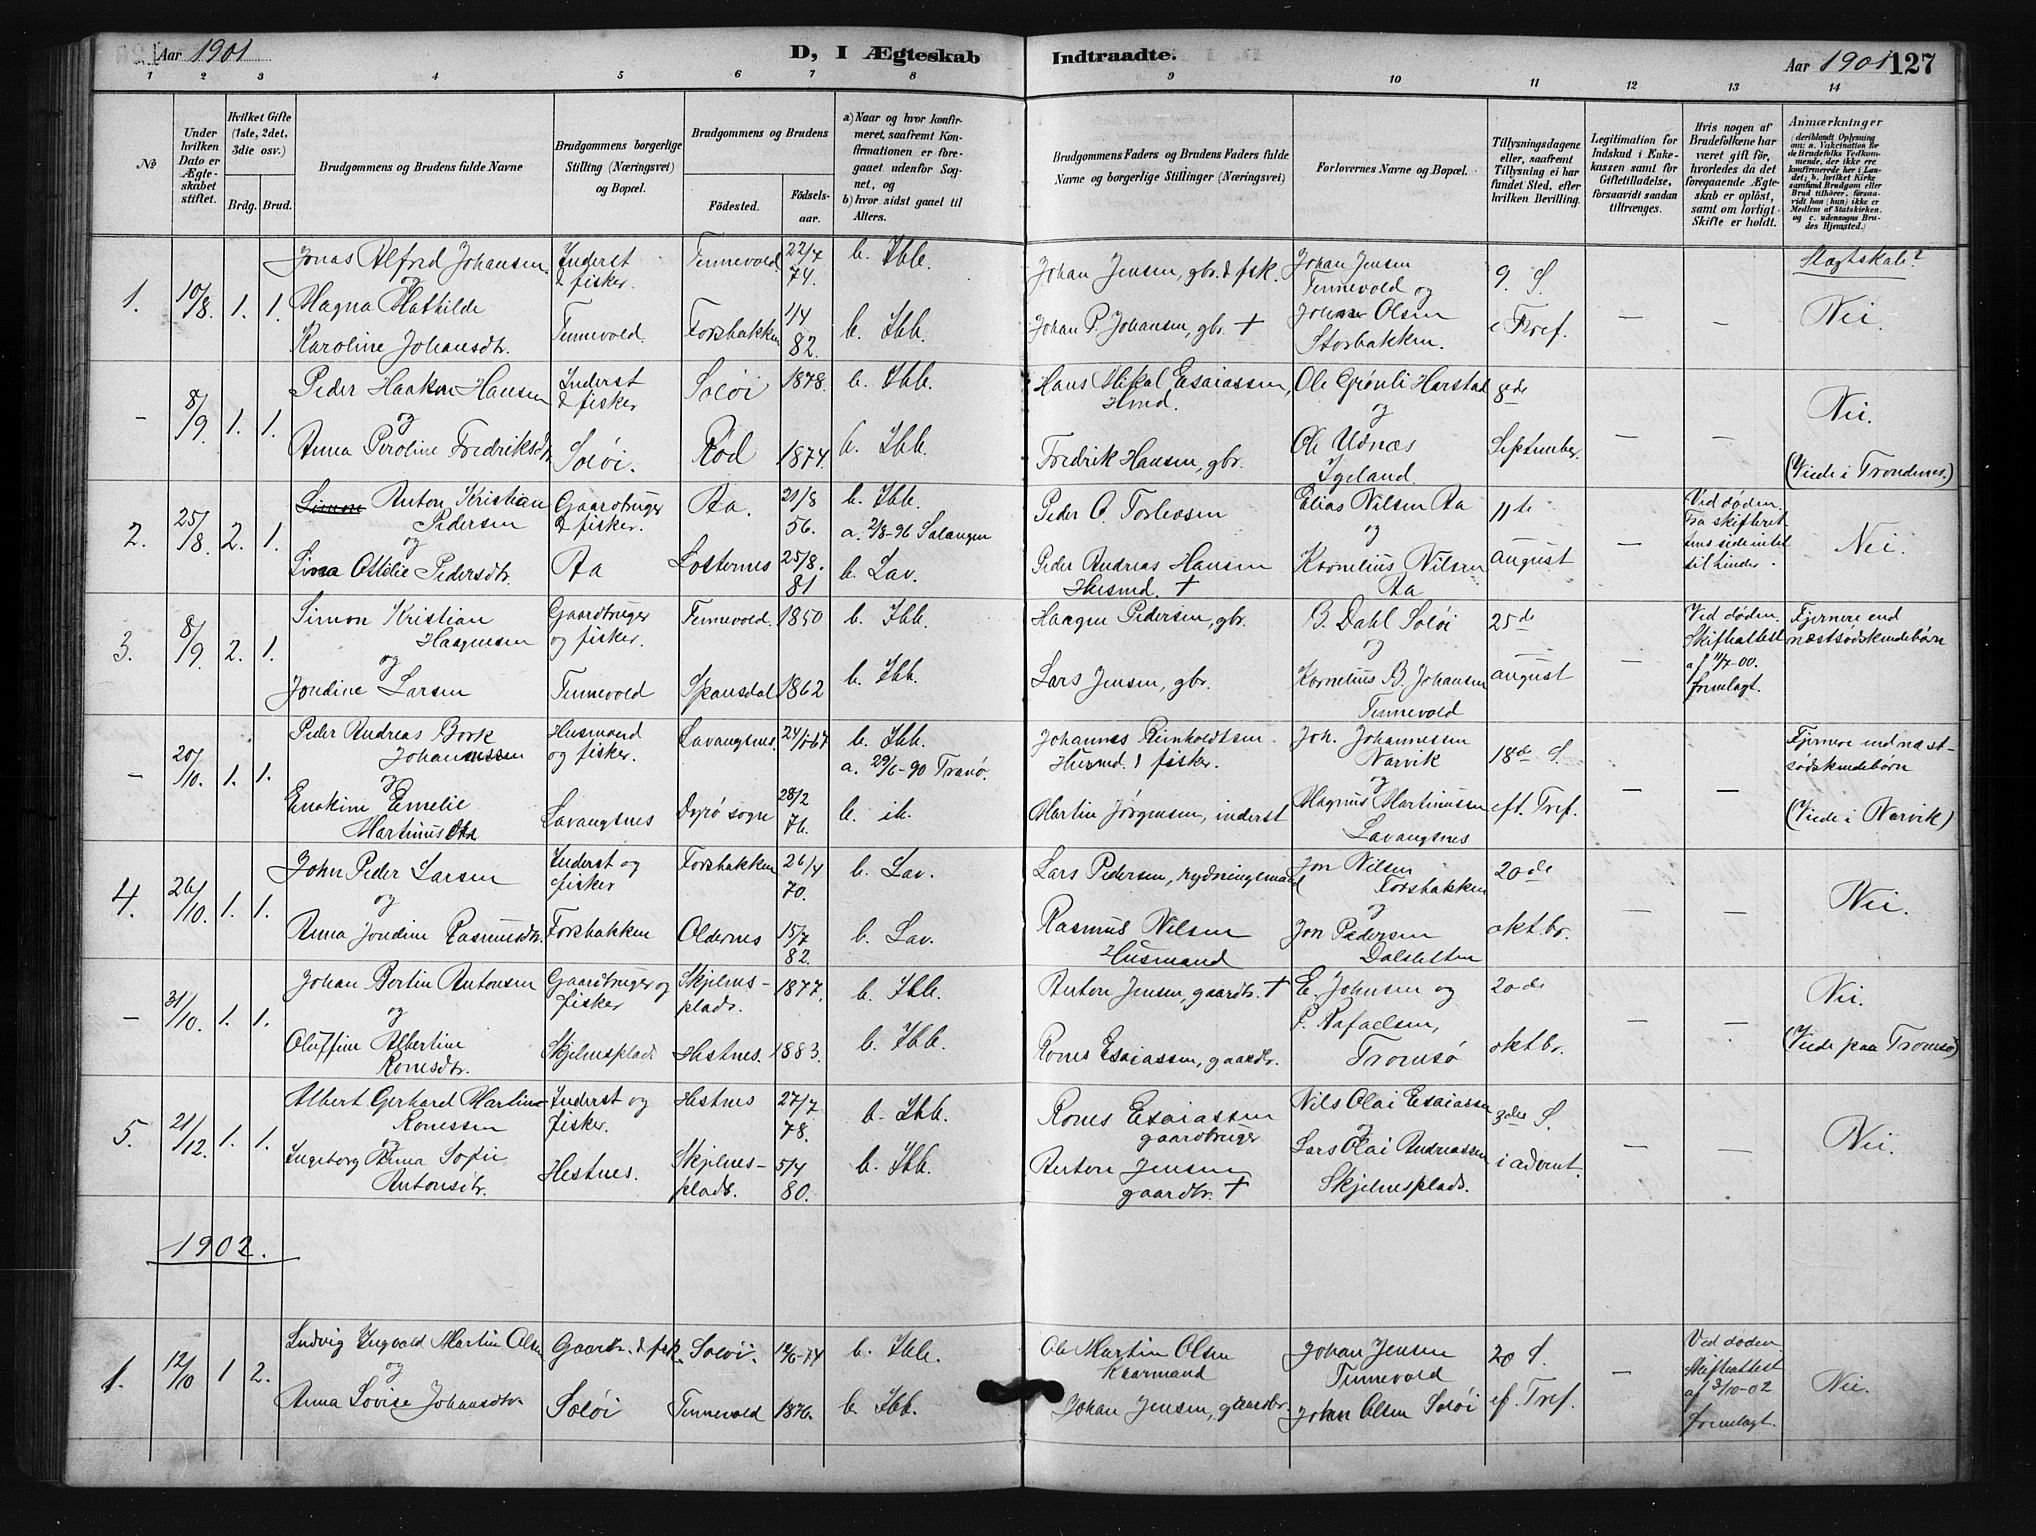 Aar 1901
D, I Ægteskab Indtraadte.
Aar 1901 127
1 2 3 4 5 6 7 8 9 10 11 12 13 14
№
Under hvilken Dato er Ægteskabet stiftet.
Hvilket Gifte (1ste, 2det, 3die osv.)
Brdg. Brud.
Brudgommens og Brudens fulde Navne
Brudgommens borgerlige Stilling (Næringsvei) og Bopæl.
Brudgommens og Brudens
Fødested.
Fødselsaar.
a) Naar og hvor konfirmeret, saafremt Konfirmationen er foregaaet udenfor Sognet, og
b) hvor sidst gaaet til Alters.
Brudgommens Faders og Brudens Faders fulde Navne og borgerlige Stillinger (Næringsvei)
Forlovernes Navne og Bopæl.
Tillysningsdagene eller, saafremt Tillysning ei har fundet Sted, efter hvilken Bevilling.
Legitimation for Indskud i Enkekassen samt for Giftetilladelse, forsaavidt saadan tiltrænges.
Hvis nogen af Brudefolkene har været gift før, hvorledes da det foregaaende Ægteskab er opløst, samt om lovligt Skifte er holdt.
Anmærkninger
(deriblandt Oplysning om: a. Vakcination for de Brudefolks Vedkommende, der ikke ere konfirmerede her i Landet; b. hvilket Kirkesamfund Brudgom eller Brud tilhører, forsaavidt han (hun) ikke er Medlem af Statskirken og c. udensogns Brudes Hjemsted.)
Slægtskab?
1. 10/8 1. 1.
Jonas Alfred Johansen
og
Magna Mathilde
Karoline Johansdtr.
Inderst & fisker.
Tennevold.
Tennevold 22/7 74.
Forsbakken 1/4 82.
b. Ibb.
b. Ibb.
Johan Jensen, gbr. & fsk.
Johan P. Johansen, gbr. †
Johan Jensen
Tennevold og
Johan Olsen
Storbakken.
9. S.
e Tref.
—
—
Nei.
– 8/9. 1. 1.
Peder Haakon Hansen
og
Anna Peroline Fredriksdtr.
Inderst & fisker
Soløi.
Soløi 1878.
Rød 1874.
b. Ibb.
b. Ibb.
Hans Mikal Esaiassen,
Hmd.
Fredrik Hansen, gbr.
Ole Grønli Harstad
og
Ole Udnæs
Igeland.
8de
September.
—
—
Nei.
(Viede i Trondenes.)
2. 25/8. 2. 1.
Anton Kristian
Pedersen
og
Sina Ottilie Pedersdtr.
Gaardbruger & fisker.
Aa
Aa. 21/8 56.
Losternes 25/8. 81
b. Ibb.
a. 2/8-96 Salangen
b. Lav.
Peder O. Torleosen
Peder Andreas Hansen
Husmd. †
Elias Nilsen Aa
og
Kornelius Nilsen
Aa
11te
august
—
Ved døden.
Nei.
3. 8/9. 2. 1.
Simon Kristian
Haagensen
og
Jondine Larsen
Gaardbruger og fisker.
Tennevold
Tennevold. 1850
Spansdal 1862
b. Ibb.
b. Ibb.
Haagen Pedersen, gbr.
Lars Jensen, gbr.
B. Dahl Soløi
og
Kornelius B. Johansen
Tennevold
25de
august
—
Ved døden.
Skifteattest
af 11/7-00.
fremlagt.
Fjernere end
næstsødskendebørn
– 20/10. 1. 1.
Peder Andreas Bork
Johannessen
og
Enokine Emelie
Martinusdtr
Husmand og fisker.
Lavangsnes
Lavangsnes. 24/1-67
Dyrø sogn 28/2 76.
b. Ibb.
a. 29/6-90 Tranø.
b. ib.
Johannes Reinholdtsen.
Husmd. & fisker.
Martin Jørgensen, inderst
Joh. Johannessen
Narvik
og
Magnus Martinussen
Lavangsnes
18de S.
eft. Tref.
—
—
Fjernere end næst-
sødskendebørn
(Viede i Narvik)
4. 26/10. 1. 1.
John Peder Larsen
og
Anna Jondine Rasmusdtr.
Inderst og fisker
Forsbakken
Forsbakken 26/4 70.
Oldernes 15/7 82.
b. Lav.
b. Lav.
Lars Pedersen, rydningsmand
Rasmus Nilsen
Husmand
Jon Nilsen
Forsbakken
og
Jon Pedersen
Dalsletten
20de
oktbr.
—
—
Nei.
– 31/10. 1. 1.
Johan Bertin Antonsen
og
Oluffine Albertine
Ronesdtr.
Gaardbruger og fisker
Skjelnesplads
Skjelnes-
plads. 1877.
Hestnes. 1883.
b. Ibb.
b. Ibb.
Anton Jensen, gaardbr. †
Rones Esaiassen, gaardbr.
E. Johnsen og
P. Rafaelsen,
Tromsø
20de
oktbr.
—
—
Nei.
(Viede paa Tromsø)
5. 21/12. 1. 1.
Albert Gerhard Martin
Ronessen
og
Ingeborg Anna Sofie
Antonsdtr.
Inderst og fisker.
Hestnes.
Hestnes 27/7 78.
Skjelnes-
plads. 5/4 80.
b. Ibb.
b. Ibb.
Rones Esaiassen
gaardbruger
Anton Jensen
gaardbr. †
Nils Olai Esaiassen
og
Lars Olai Andreassen
Skjelnesplads.
3die S.
i advent.
—
—
Nei.
1902.
1. 12/10 1 2.
Ludvig Ingvald Martin Olsen
og
Anna Lovise Johansdtr
Gaardbr. & fisk.
Soløi
Soløi. 12/6-74
Tennevold 1876.
b. Ibb.
b. Ibb.
Ole Martin Olsen
Kaarmand
Johan Jensen, gaardbr.
Johan Jensen
Tennevold
Johan Olsen Soløi
20 S.
ef. Tref.
—
Ved døden
Skifteattest
af 3/10-02
fremlagt.
Nei.